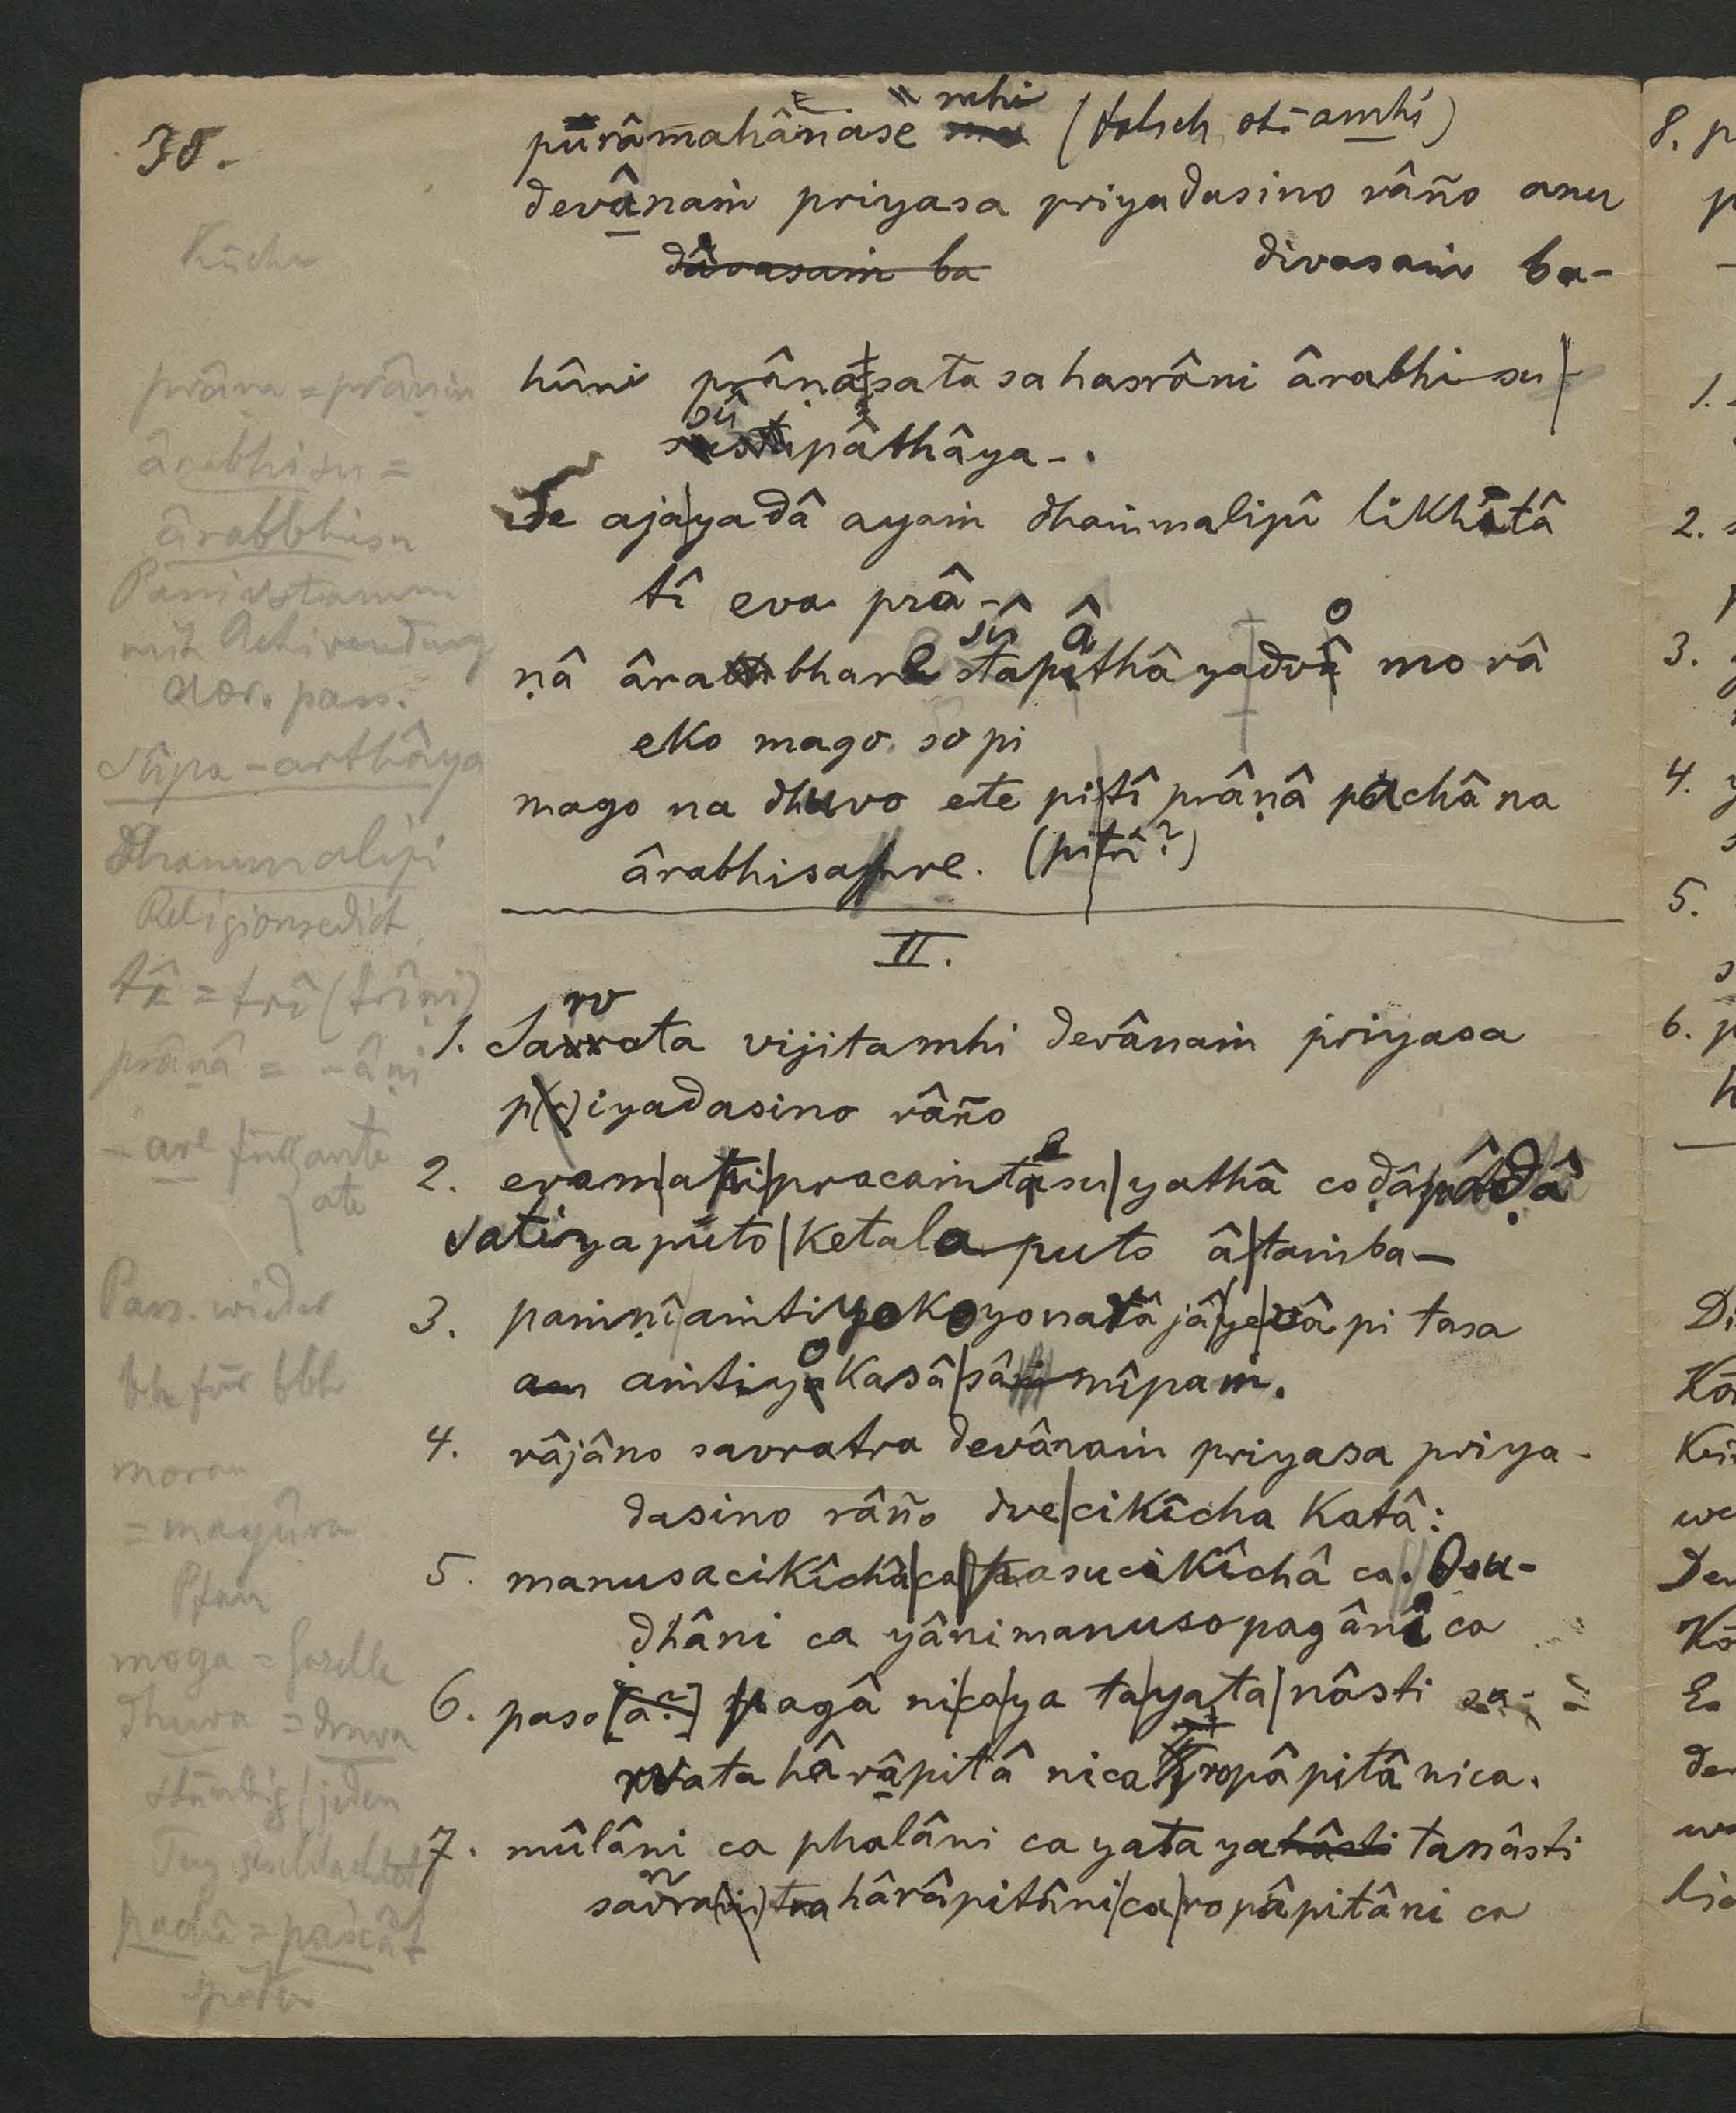 38.
purâmahânase mhi (falsch st. amhi)
devânaṁ priyasa priyadasino râño anu
divasaṁ ba-
hûni prâna satasahasrâni ârabhisu
sûpâthâya-.
Se aja yadâ ayaṁ dhaṁmalipî likhitâ
tî eva prâ-
ṇâ ârabhare sûpâthâya dvo morâ
eko mago. so pi
mago na dhuvo ete pi tî prâṇâ pachâ na
ârabhisaṁre. (pi trî?)
II.
1. Sarvata vijitamhi devânaṁ priyasa
p(r)iyadasino râño
2. evam api pracaṁtesu yathâ coḍâ pâḍâ
Satiyaputo Ketalaputo â taṁba-
3. paṁṇî aṁtiyoko yonarâjâ ye vâ pi tasa
aṁtiyokasâ sâmîpaṁ.
4. râjâno savratra devânaṁ priyasa priya-
dasino râño dve cikîcha Katâ:
5. manusacikîchâ ca pasucikîchâ ca. Osu-
ḍhâni ca yâni manusopagâni ca
6. paso [a?] pagâ ni ca ya ta yata nâsti sa-
rvata hârâpitâ nica ropâpitâ nica.
7. mûlâni ca phalâni ca yata ya tanâsti
savrata hârâpitâni ca ropâpitâni ca
Küche
prâna = prânin
ârabhisu =
ârabbhisu
Passivstamm
mit Activendung
aor. pass.
Sûpa-arthâya
Dhaṁmalipi
Religionsedict
tî = trî (trîṇi)
prânâ = -âṇi
-are für ante
ate
Pass. wieder
bh für bbh
mora
= mayûra
Pfau
moga = Gazelle
dhuva = druva
ständig / jeden
Tag geschlachtet
pachâ = paścât
später
8. p
p
1.
2. s
3.
4. y
s
5.
s
6. p
Di
Kö
we
Der
Kö
Es
der
we
lic